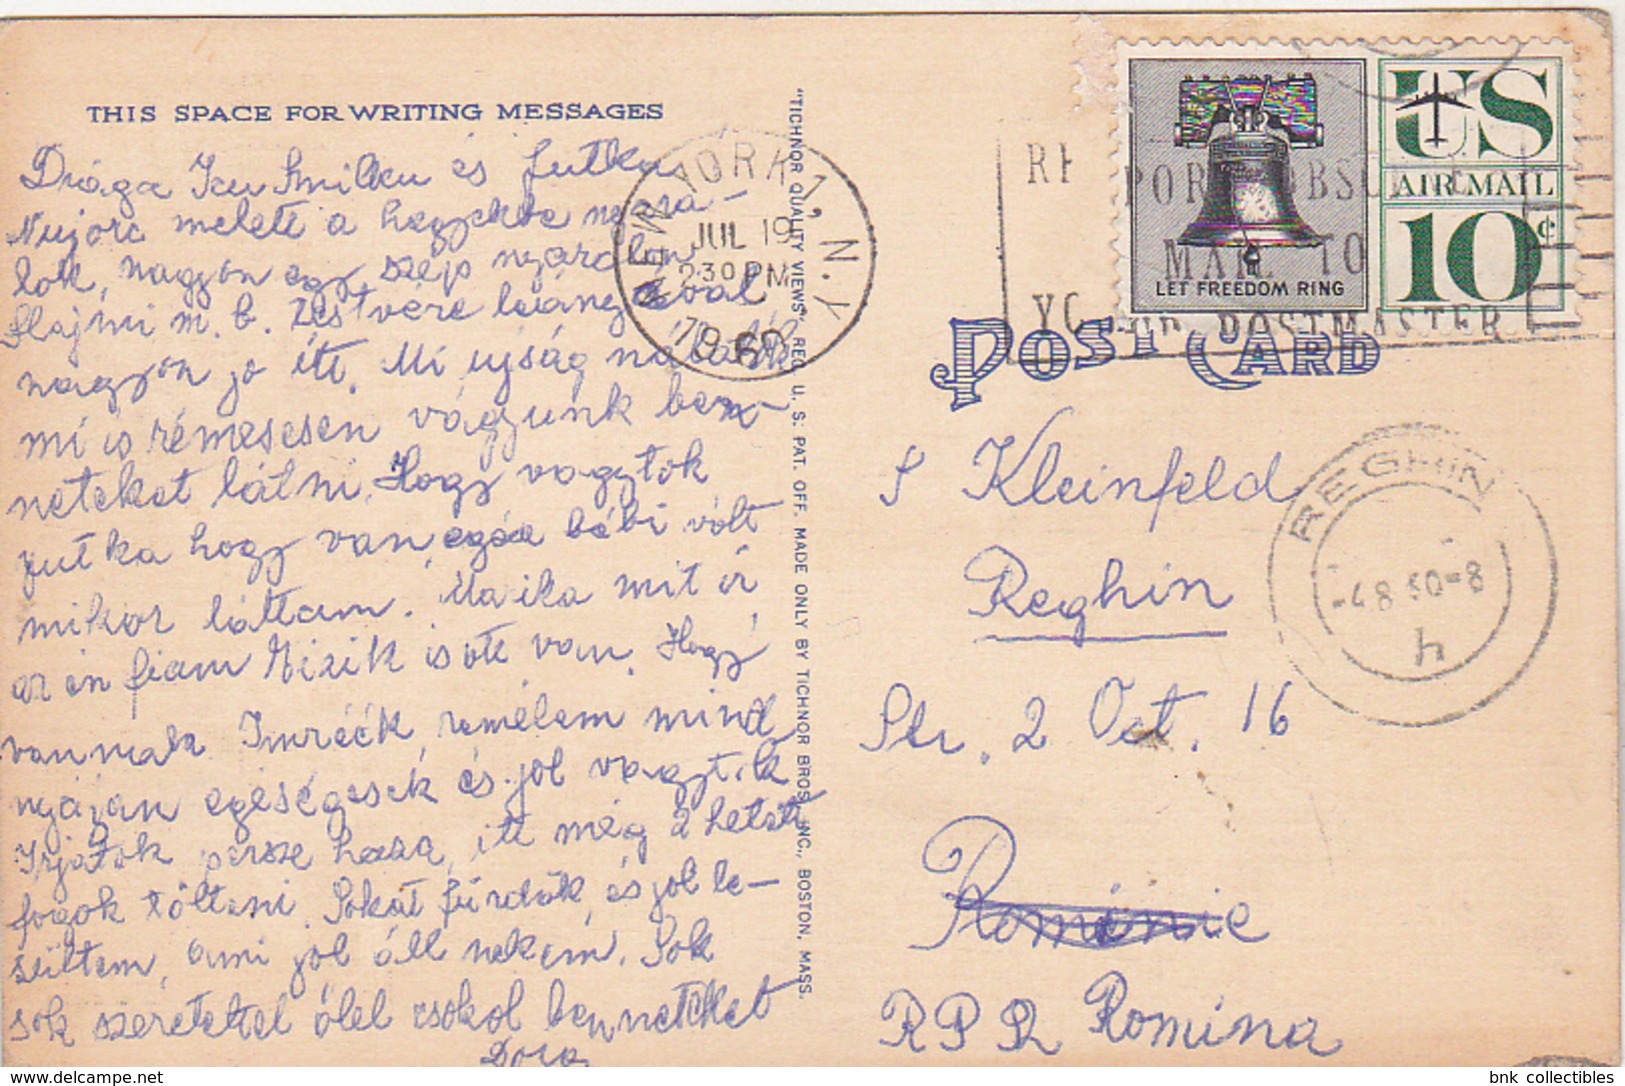 THIS SPACE FOR WRITING MESSAGES
Drága és Jutka
Nujorc melett a hegyekbe nyara-
lok, nagyon egy szép nyaralon
m. b. Zestvére leányával
nagyon jo itt. Mi ujság nálatok
mi is rémesesen vágyunk ben-
neteket látni. Hogy vagytok
Jutka hogy van, bébi vólt
mikor láttam. mit ir
az én fiam Mizik is ott van. Hogy
vannak Imréék, remélem mind
nyáján egéségesek és jol vagytok
Irjatok persze haza, itt még 2 hetet
fogok tölteni. Sokat fürdök, és jol le-
sültem, ami jol áll nekem. Sok
sok szeretettel ölel csokol benneteket
Dora
"TICHNOR QUALITY VIEWS," REG. U. S. PAT. OFF. MADE ONLY BY TICHNOR BROS. INC., BOSTON, MASS.
NEW YORK 1, N.Y.
JUL 19
2 30 PM
1960
US
AIR MAIL
10¢
LET FREEDOM RING
MAIL TO
POSTMASTER
POST CARD
Kleinfeld
Reghin
Str. 2 Oct. 16
Románie
RPR Romina
REGHIN
-4 8 60-8
h
bnk collectibles
https://www.delcampe.net